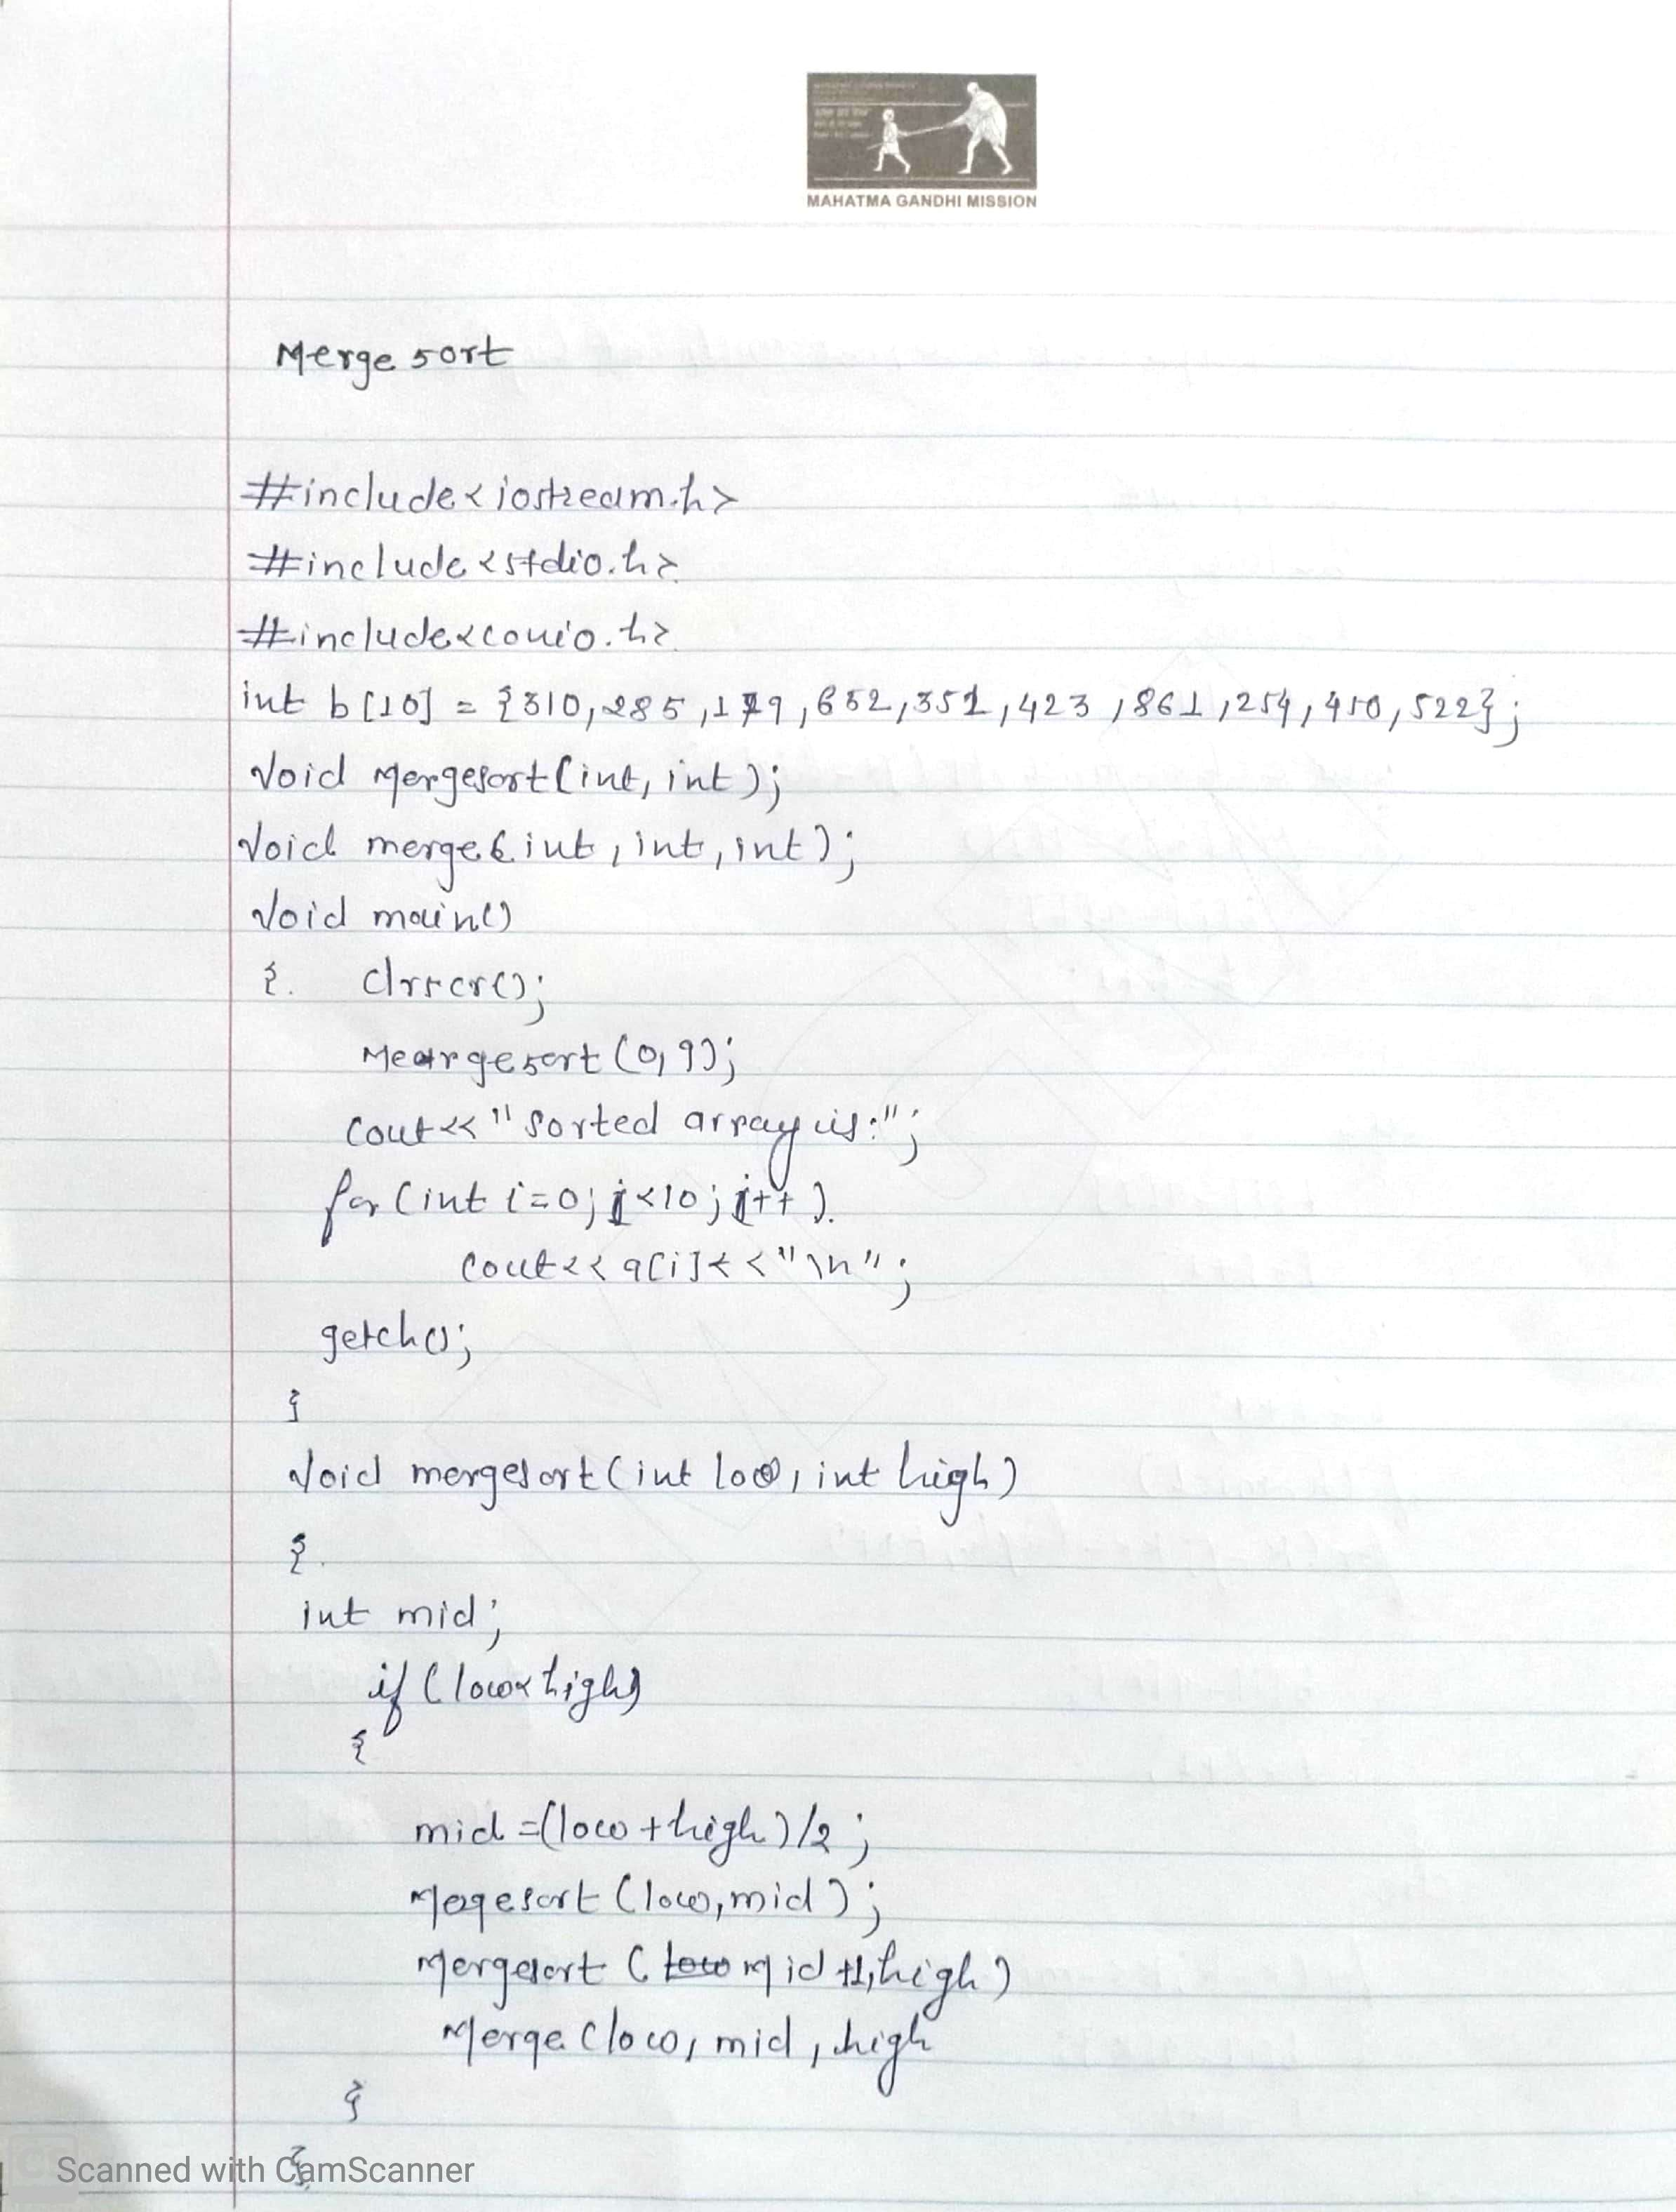 MAHATMA GANDHI MISSION
Merge sort
#include<iostream.h>
#include<stdio.h>
#include<conio.h>
int b[10] = {310,285,179,652,351,423,861,254,450,522};
Void Mergesort(int, int);
Void merge(int, int, int);
Void main()
{. clrscr();
Meargesort(0,9);
Cout<<"Sorted array is:";
for(int i=0; j<10; j++).
Cout<<a[i]<<"\n";
getch();
}
Void mergesort(int low, int high)
{.
int mid;
if(low<high)
{
mid=(low+high)/2;
Mogesort(low,mid);
Mergesort(low mid+1,high)
Merge(low, mid, high
}
}.
Scanned with CamScanner